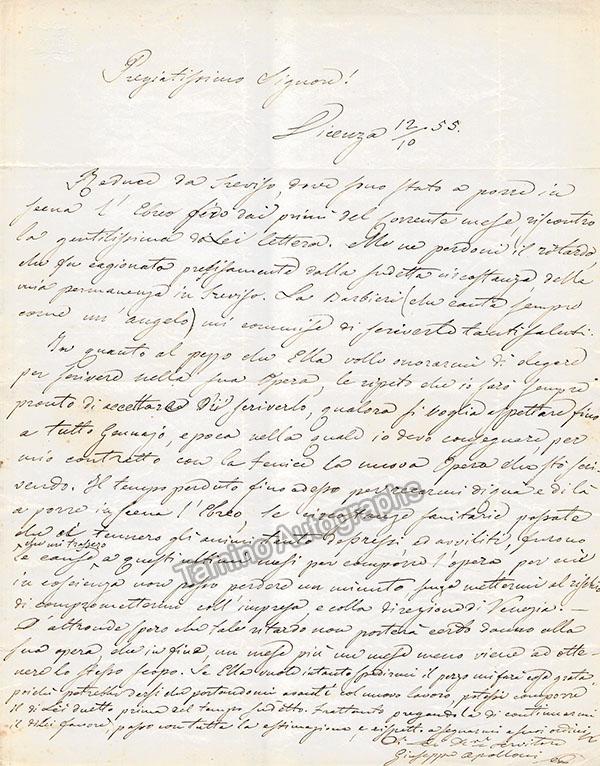 Pregiatissimo Signore!
Vicenza 12/10 55.
Reduce da Treviso, dove sono stato a porre in
scena l'Ebreo fino dai primi del corrente mese riscontro
la gentilissima di Lei lettera. Me ne perdoni il ritardo,
che fu cagionato precisamente dalla sudetta circostanza della
mia permanenza in Treviso. La Barbieri (che canta sempre
come un angelo) mi commise di scriverle tanti saluti.
In quanto al pezzo che Ella volle onorarmi di elegere
per scrivere nella sua Opera, le ripeto che io sarò sempre
pronto di accettare di scriverlo, qualora si voglia aspettare fino
a tutto Gennajo, epoca nella quale io devo consegnare per
mio contratto con la Fenice la nuova Opera che stò scri-
vendo. Il tempo perduto fino adesso per recarmi di qua e di là
a porre in scena l'Ebreo, le circostanze sanitarie passate
che tennero gli animi tanto depressi ed avviliti, furono
che mi trassero
le cause a questi ultimi mesi per comporre l'opera, per cui
in coscienza non posso perdere un minuto senza mettermi al rischio
di compromettermi coll'impresa e colla direzione di Venezia. —
D'altronde spero che tale ritardo non porterà certo danno alla
sua opera, che in fine un mese più un mese meno viene ad otte-
nere lo stesso scopo. Se Ella vuole intanto spedirmi il pezzo mi farà cosa grata,
poichè potrebbe darsi che portandomi avanti col nuovo lavoro, potessi comporre
il di Lei duetto prima del tempo sudetto. Frattanto pregandola di continuarmi
il di Lei favore, passo con tutta la estimazione e rispetti a segnarmi a suoi ordini
Di Lei Dev. servitore
Giuseppe Apolloni
Tamino Autographs